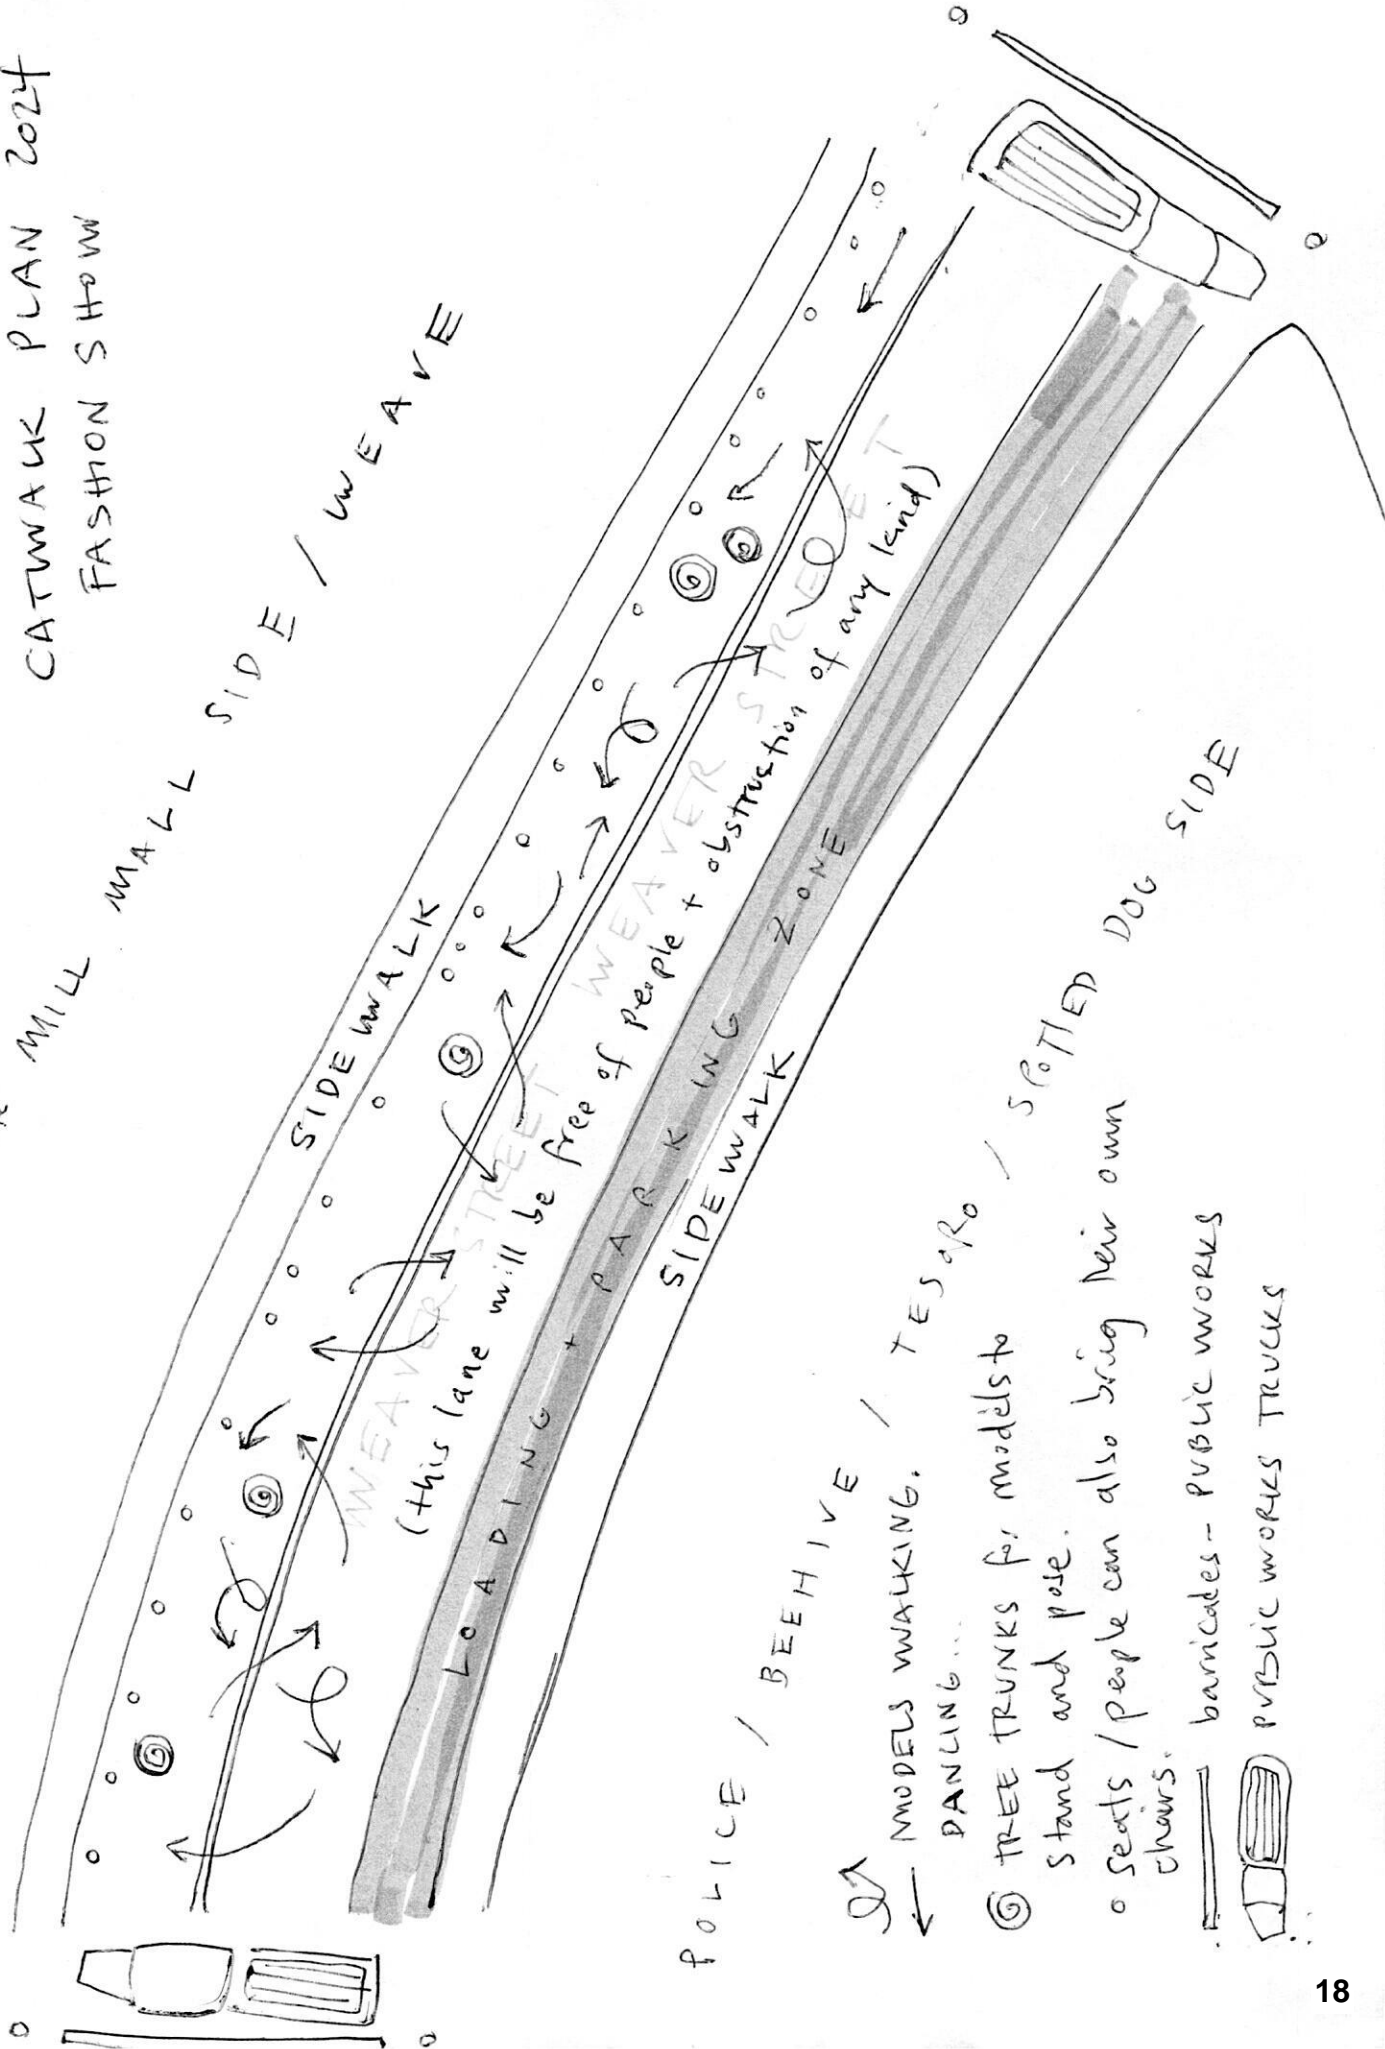 CATWALK PLAN 2024
FASHION SHOW
MILL MALL SIDE / WEAVE
SIDEWALK
WEAVER STREET WEAVER STREET
(this lane will be free of people + obstruction of any kind)
LOADING + PARKING ZONE
SIDEWALK
POLICE / BEEHIVE / TESORO / SPOTTED DOG SIDE
MODELS WALKING.
DANCING...
TREE TRUNKS for models to
stand and pose.
seats / people can also bring their own
chairs.
barricades - PUBLIC WORKS
PUBLIC WORKS TRUCKS
18